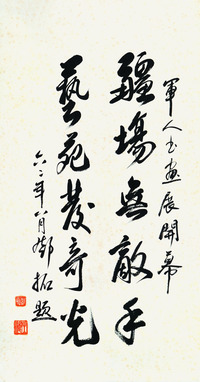 軍人书画展開幕
疆場無敵手
藝苑發奇光
六二年八月鄧拓題